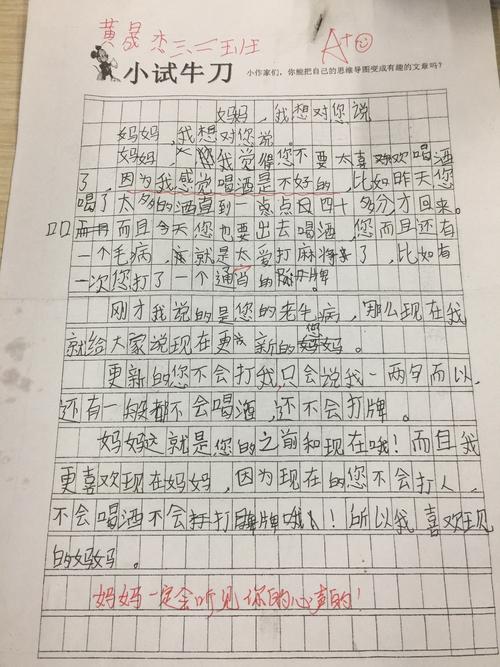 黄晟杰三、二班
A+
小试牛刀 小作家们，你能把自己的思维导图变成有趣的文章吗？
妈妈，我想对您说
妈妈，我想对您说。
妈妈，我觉得您不要太喜欢喝酒
了，因为我感觉喝酒是不好的，比如昨天您
喝了太多的酒直到一点点四十多分才回来。
而且今天您也要出去喝酒，您而且还有
一个毛病，就是太爱打麻将了，比如有
一次您打了一个通宵的牌
刚才我说的是您的老毛病，那么现在我
就给大家说现在更新的您
更新的您不会打我，只会说我一两句而以，
还有一般都不会喝酒，还不会打牌。
妈妈这就是您的之前和现在哦！而且我
更喜欢现在妈妈，因为现在的您不会打人，
不会喝酒不会打牌哦！所以我喜欢现
的妈妈。
妈妈一定会听见你的心声的！